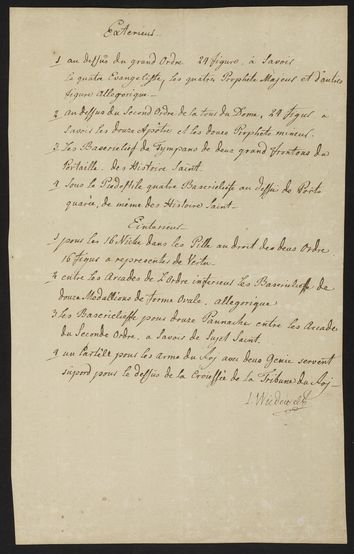 Exterieus.
1 au dessus du grand Ordre 24 figure, à Savois
le quatre Evangeliste, les quatres Prophete Majeus et d'autres
figure Allegorique
2 au dessus du Second Ordre de la tous du Dome, 24 Figus a
Savois les douze Apôtres et les douze Prophete mineus.
3 Les Bascrelief de Tympans de deux grand frontons du
Portaille. des Histoire Saint.
4 Sous le Piedestile quatre Bascreliefs au dessus de Porte
quarée, de même des Histoire Saint.
Einterieus.
1 pous les 16 Niche dans les Pille au droit des deux Ordre
16 figus a representes de Vertu
2 entre les Arcades de L'Ordre inferieus les Bascreliefs de
douze Medallions de forme Ovale. allegorique
3 les Bascreliefs pous douze Pannache entre les Arcade
du Seconde Ordre. a Savois de Sujet Saint.
4 un Cartêll pous les Arme du Roj avec deux Genie servent
supord pous le dessus de la Croissée de la Tribune du Roj
J. Wiedewelt